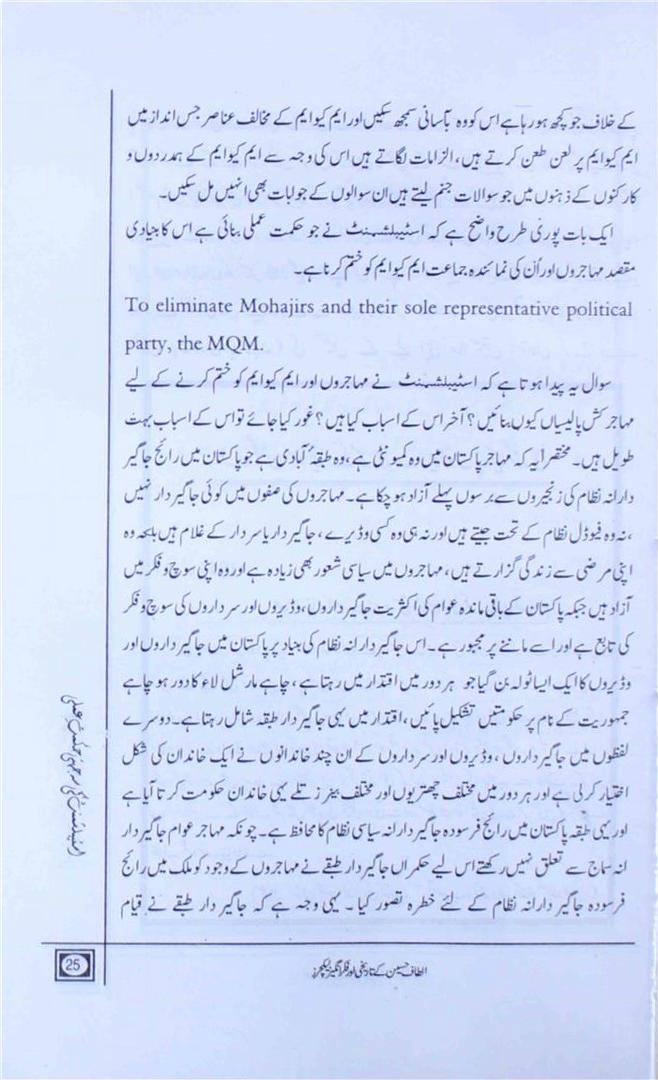 کے خلاف جو کچھ ہو رہا ہے اس کو وہ بآسانی سمجھ سکیں اور ایم کیو ایم کے مخالف عناصر جس انداز میں
ایم کیو ایم پر لعن طعن کرتے ہیں، الزامات لگاتے ہیں اس کی وجہ سے ایم کیو ایم کے ہمدردوں و
کارکنوں کے ذہنوں میں جو سوالات جنم لیتے ہیں ان سوالوں کے جوابات بھی انہیں مل سکیں۔
ایک بات پوری طرح واضح ہے کہ اسٹیبلشمنٹ نے جو حکمت عملی بنائی ہے اس کا بنیادی
مقصد مہاجروں اور اُن کی نمائندہ جماعت ایم کیو ایم کو ختم کرنا ہے۔
To eliminate Mohajirs and their sole representative political
party, the MQM.
سوال یہ پیدا ہوتا ہے کہ اسٹیبلشمنٹ نے مہاجروں اور ایم کیو ایم کو ختم کرنے کے لیے
مہاجر کش پالیسیاں کیوں بنائیں؟ آخر اس کے اسباب کیا ہیں؟ غور کیا جائے تو اس کے اسباب بہت
طویل ہیں۔ مختصراً یہ کہ مہاجر پاکستان میں وہ کمیونٹی ہے، وہ طبقہٴ آبادی ہے جو پاکستان میں رائج جاگیر
دارانہ نظام کی زنجیروں سے برسوں پہلے آزاد ہو چکا ہے۔ مہاجروں کی صفوں میں کوئی جاگیر دار نہیں
،نہ وہ فیوڈل نظام کے تحت جیتے ہیں اور نہ ہی وہ کسی وڈیرے، جاگیر دار یا سردار کے غلام ہیں بلکہ وہ
اپنی مرضی سے زندگی گزارتے ہیں، مہاجروں میں سیاسی شعور بھی زیادہ ہے اور وہ اپنی سوچ و فکر میں
آزاد ہیں جبکہ پاکستان کے باقی ماندہ عوام کی اکثریت جاگیر داروں، وڈیروں اور سرداروں کی سوچ و فکر
کی تابع ہے اور اسے ماننے پر مجبور ہے۔ اس جاگیر دارانہ نظام کی بنیاد پر پاکستان میں جاگیر داروں اور
وڈیروں کا ایک ایسا ٹولہ بن گیا جو ہر دور میں اقتدار میں رہتا ہے، چاہے مارشل لاء کا دور ہو چاہے
جمہوریت کے نام پر حکومتیں تشکیل پائیں، اقتدار میں یہی جاگیر دار طبقہ شامل رہتا ہے۔ دوسرے
لفظوں میں جاگیر داروں، وڈیروں اور سرداروں کے ان چند خاندانوں نے ایک خاندان کی شکل
اختیار کر لی ہے اور ہر دور میں مختلف چھتریوں اور مختلف بینرز تلے یہی خاندان حکومت کرتا آیا ہے
اور یہی طبقہ پاکستان میں رائج فرسودہ جاگیر دارانہ سیاسی نظام کا محافظ ہے۔ چونکہ مہاجر عوام جاگیر دار
انہ سماج سے تعلق نہیں رکھتے اس لیے حکمراں جاگیر دار طبقے نے مہاجروں کے وجود کو ملک میں رائج
فرسودہ جاگیر دارانہ نظام کے لئے خطرہ تصور کیا۔ یہی وجہ ہے کہ جاگیر دار طبقے نے قیام
الطاف حسین کے تاریخی اور فکر انگیز لیکچرز
25